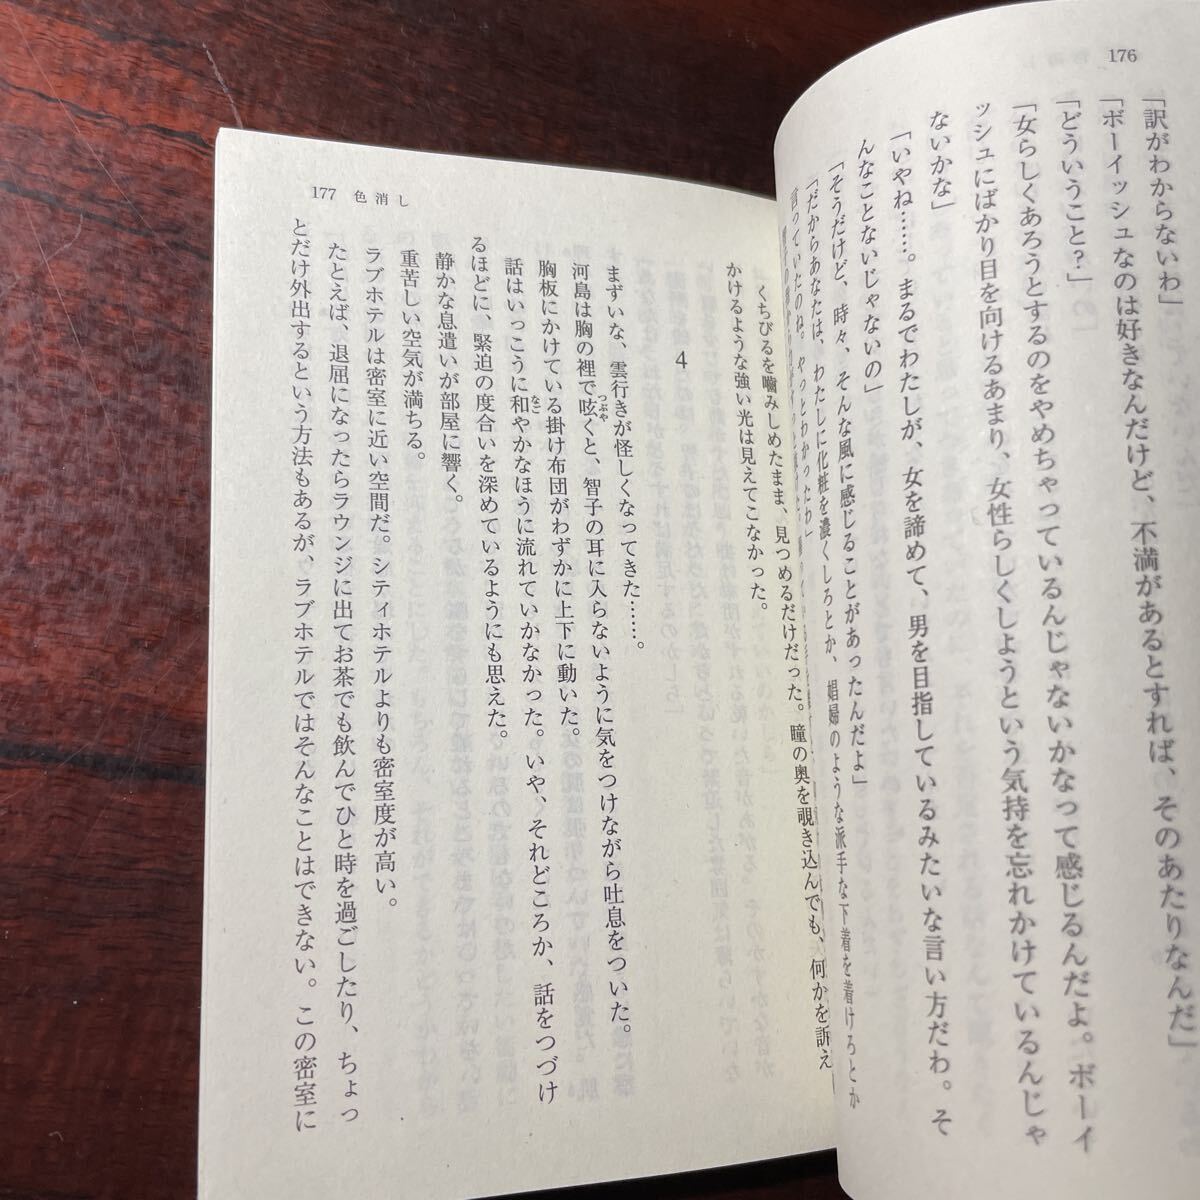 176
「訳がわからないわ」
「ボーイッシュなのは好きなんだけど、不満があるとすれば、そのあたりなんだ」
「どういうこと?」
「女らしくあろうとするのをやめちゃっているんじゃないかなって感じるんだよ。ボーイ
ッシュにばかり目を向けるあまり、女性らしくしようという気持を忘れかけているんじゃ
ないかな」
「いやね……。まるでわたしが、女を諦めて、男を目指しているみたいな言い方だわ。そ
んなことないじゃないの」
「そうだけど、時々、そんな風に感じることがあったんだよ」
「だからあなたは、わたしに化粧を濃くしろとか、娼婦のような派手な下着を着けろとか
言っていたのね。やっとわかったわ」
177 色消し
くちびるを噛みしめたまま、見つめるだけだった。瞳の奥を覗き込んでも、何かを訴え
かけるような強い光は見えてこなかった。
4
まずいな、雲行きが怪しくなってきた……。
河島は胸の裡で呟くと、智子の耳に入らないように気をつけながら吐息をついた。
つぶや
胸板にかけている掛け布団がわずかに上下に動いた。
話はいっこうに和やかなほうに流れていかなかった。いや、それどころか、話をつづけ
なご
るほどに、緊迫の度合いを深めているようにも思えた。
静かな息遣いが部屋に響く。
重苦しい空気が満ちる。
ラブホテルは密室に近い空間だ。シティホテルよりも密室度が高い。
たとえば、退屈になったらラウンジに出てお茶でも飲んでひと時を過ごしたり、ちょっ
とだけ外出するという方法もあるが、ラブホテルではそんなことはできない。この密室に